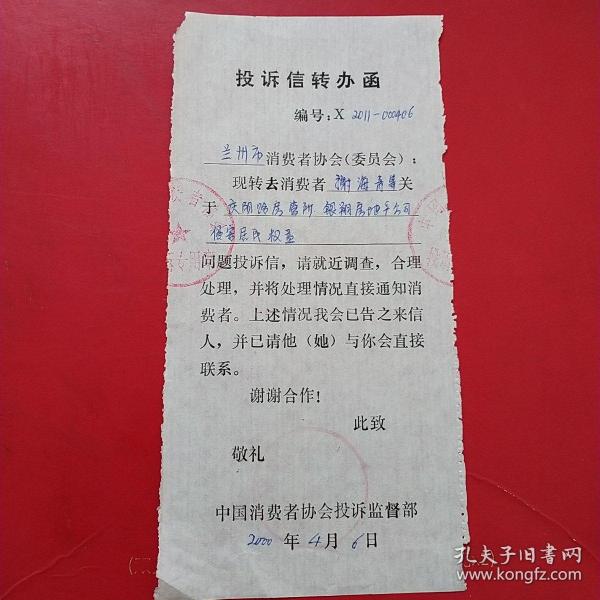 投诉信转办函
编号：X 2011-000406
兰州市消费者协会(委员会)：
现转去消费者谢海青等关
于庆阳路房管所 银翔房地产公司
侵害居民权益
问题投诉信，请就近调查，合理
处理，并将处理情况直接通知消
费者。上述情况我会已告之来信
人，并已请他（她）与你会直接
联系。
谢谢合作！
此致
敬礼
中国消费者协会投诉监督部
2000年4月6日
孔夫子旧书网
www.kongfz.com